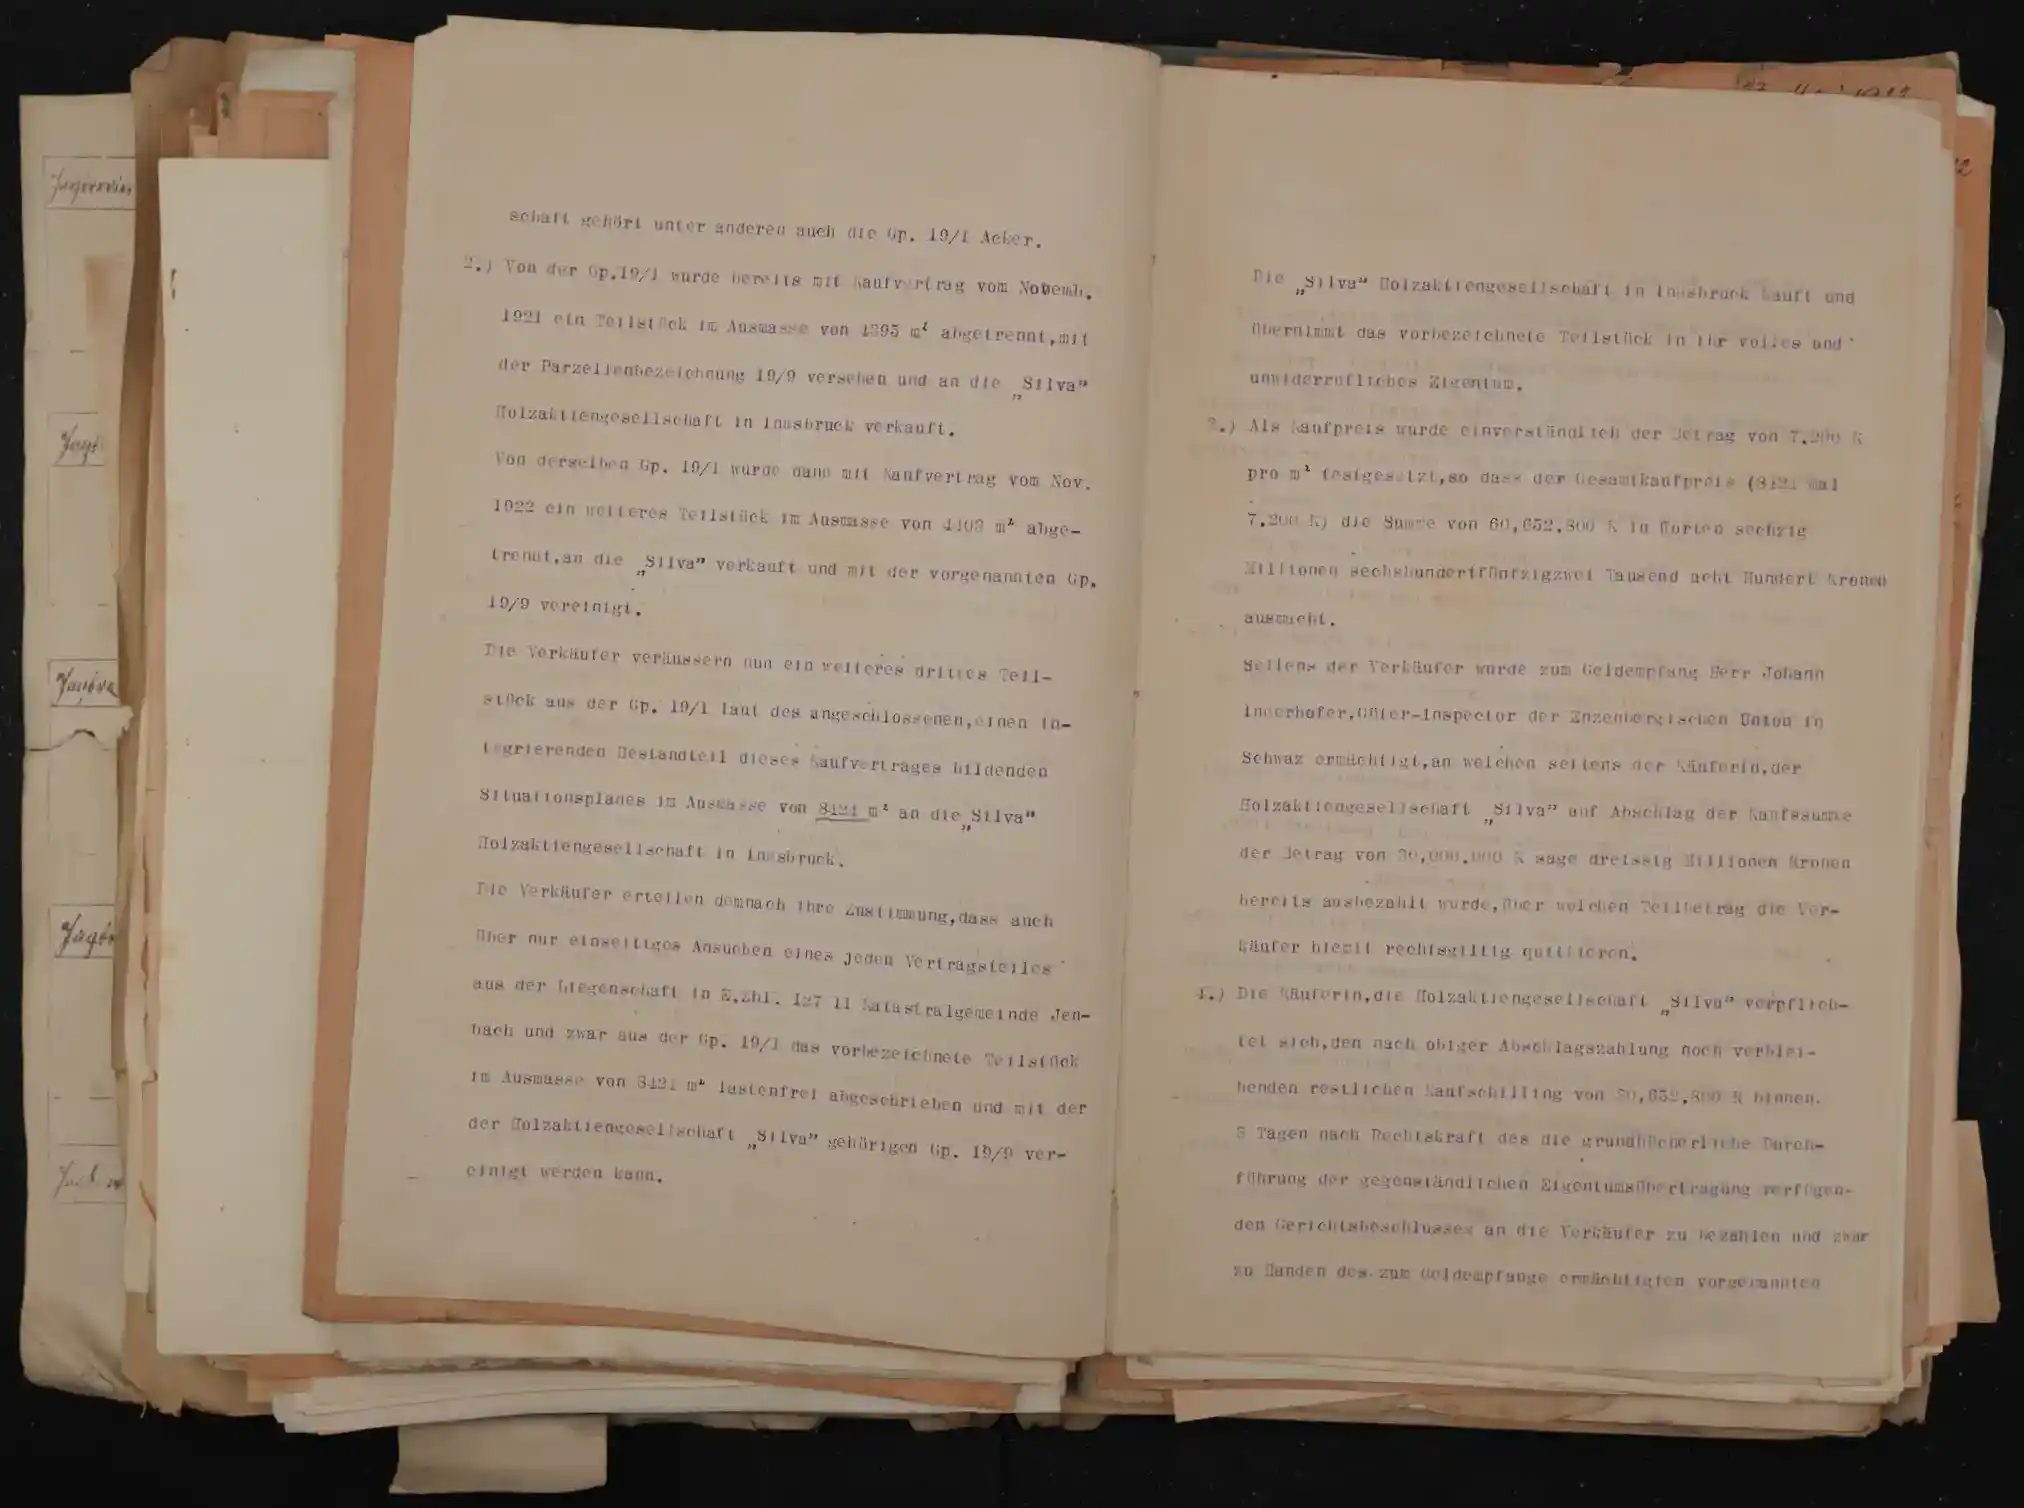 schaft gehört unter anderen auch die Gp. 19/1 Acker.
2.) Von der Gp.19/1 wurde bereits mit Kaufvertrag vom Novemb.
1921 ein Teilstück im Ausmasse von 4395 m² abgetrennt,mit
der Parzellenbezeichnung 19/9 versehen und an die „Silva"
Holzaktiengesellschaft in Innsbruck verkauft.
Von derselben Gp. 19/1 wurde dann mit Kaufvertrag vom Nov.
1922 ein weiteres Teilstück im Ausmasse von 4403 m² abge-
trennt,an die „Silva" verkauft und mit der vorgenannten Gp.
19/9 vereinigt.
Die Verkäufer veräussern nun ein weiteres drittes Teil-
stück aus der Gp. 19/1 laut des angeschlossenen,einen in-
tegrierenden Bestandteil dieses Kaufvertrages bildenden
Situationsplanes im Ausmasse von 8424 m² an die „Silva"
Holzaktiengesellschaft in Innsbruck.
Die Verkäufer erteilen demnach ihre Zustimmung,dass auch
über nur einseitiges Ansuchen eines jeden Vertragsteiles
aus der Liegenschaft in E.Zhl. 127 II Katastralgemeinde Jen-
bach und zwar aus der Gp. 19/1 das vorbezeichnete Teilstück
im Ausmasse von 8424 m² lastenfrei abgeschrieben und mit der
der Holzaktiengesellschaft „Silva" gehörigen Gp. 19/9 ver-
einigt werden kann.
Die „Silva" Holzaktiengesellschaft in Innsbruck kauft und
übernimmt das vorbezeichnete Teilstück in ihr volles und
unwiderrufliches Eigentum.
3.) Als Kaufpreis wurde einverständlich der Betrag von 7.200 K
pro m² festgesetzt,so dass der Gesamtkaufpreis (8424 mal
7.200 K) die Summe von 60,652.800 K in Worten sechzig
Millionen sechshundertfünfzigzwei Tausend acht Hundert Kronen
ausmacht.
Seitens der Verkäufer wurde zum Geldempfang Herr Johann
Innerhofer,Güter-Inspector der Enzenbergischen Union in
Schwaz ermächtigt,an welchen seitens der Käuferin,der
Holzaktiengesellschaft „Silva" auf Abschlag der Kaufssumme
der Betrag von 30,000.000 K sage dreissig Millionen Kronen
bereits ausbezahlt wurde,über welchen Teilbetrag die Ver-
käufer hiemit rechtsgiltig quittieren.
4.) Die Käuferin,die Holzaktiengesellschaft „Silva" verpflich-
tet sich,den nach obiger Abschlagszahlung noch verblei-
benden restlichen Kaufschilling von 30,652.800 K binnen
8 Tagen nach Rechtskraft des die grundbücherliche Durch-
führung der gegenständlichen Eigentumsübertragung verfügen-
den Gerichtsbeschlusses an die Verkäufer zu bezahlen und zwar
zu Handen des zum Geldempfange ermächtigten vorgenannten